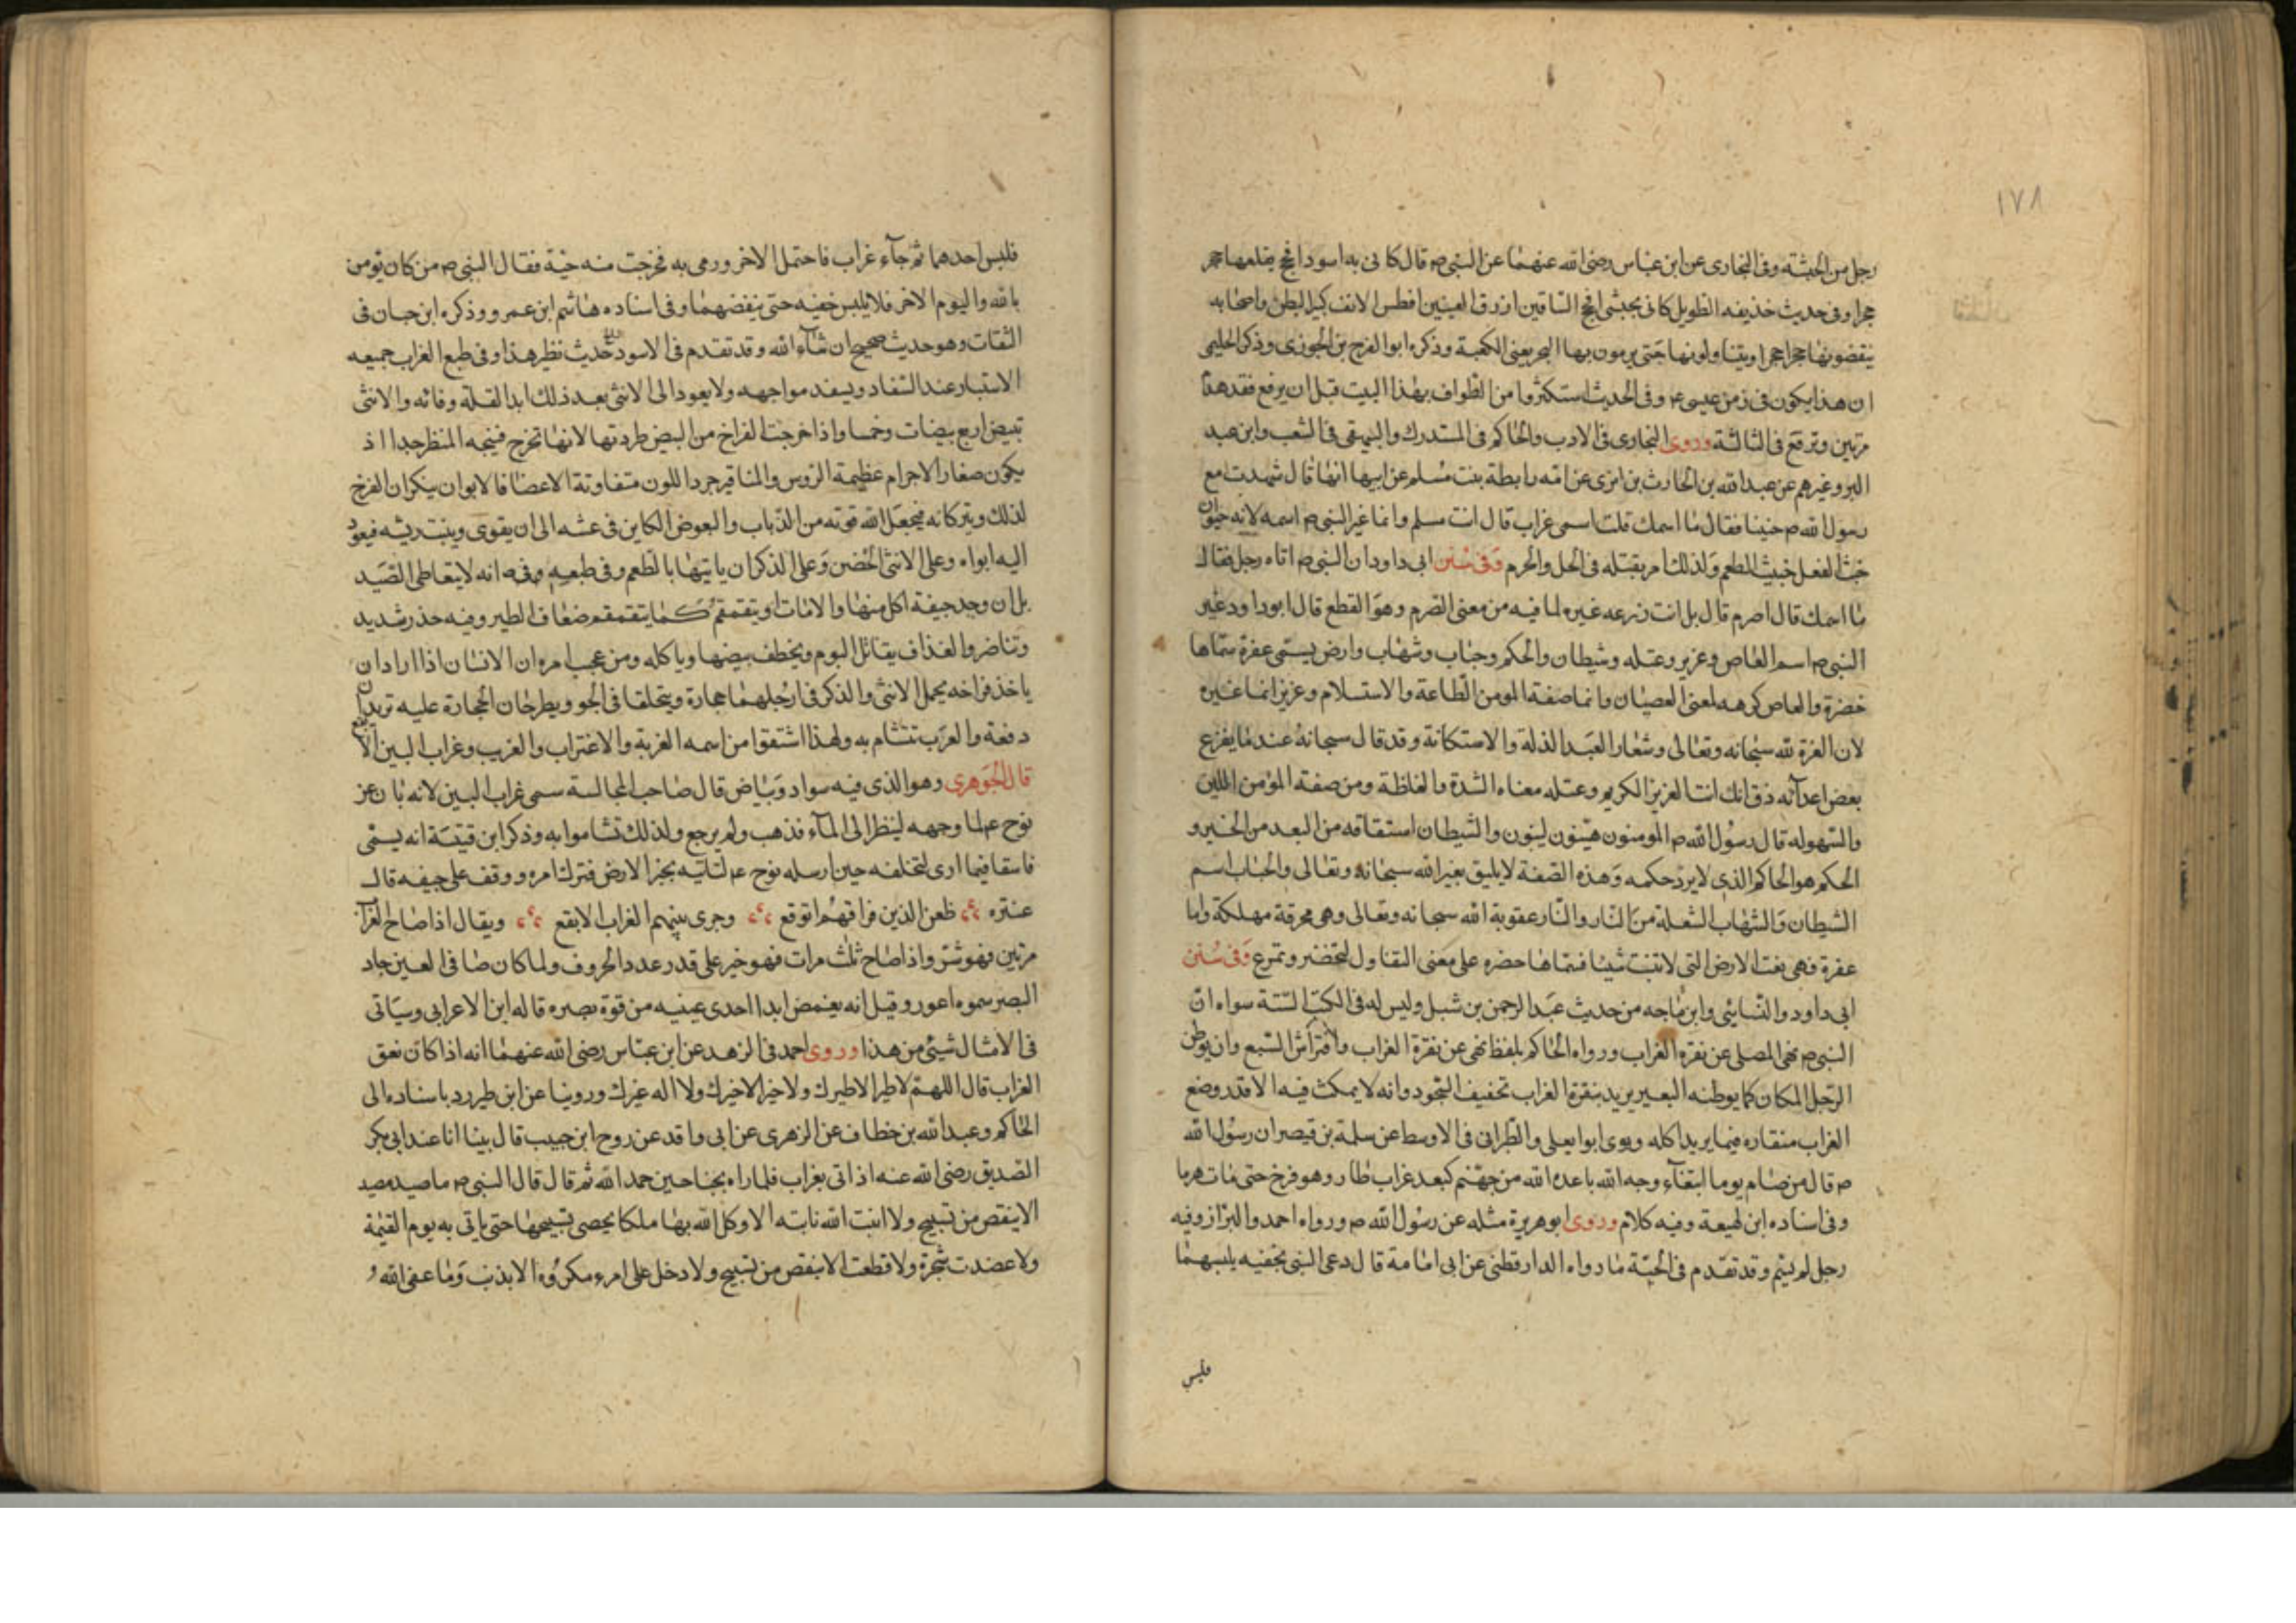 ١٧٨
رجل من الحبشة وفى البخارى عن ابن عباس رضى الله عنهما عن النبى ص قال كانى به اسود افحج يقلعها حجر
حجرا وفى حديث حذيفه الطويل كانى بحبشى افحج الساقين ازرق العينين افطس الانف كبير البطن واصحابه
ينقضونها حجرا حجرا ويتناولونها حتى يرمون بها البحر يعنى الكعبة وذكره ابو الفرج بن الجوزى وذكر الحليمى
ان هذا يكون فى زمن عيسى ع وفى الحديث استكثروا من الطواف بهذا البيت قبل ان يرفع فقد هدم
مرتين وترفع فى الثالثة وروى البخارى فى الادب والحاكم فى المستدرك والبيهقى فى الشعب وابن عبد
البر وغيرهم عن عبد الله بن الحارث بن ابزى عن امه رابطة بنت مسلم عن ابيها انها قال شهدت مع
رسول الله ص حنينا فقال ما اسمك قلت اسمى غراب قال انت مسلم وانما غير النبى ص اسمه لانه حيوان
خبث الفعل خبيث المطعم ولذلك امر بقتله فى الحل والحرم وفى سنن ابى داود ان النبى ص اتاه رجل فقال
ما اسمك قال اصرم قال بل انت زرعه غيره لما فيه من معنى الصرم وهو القطع قال ابو داود وغير
النبى ص اسم العاص وعزيز وعتله وشيطان والحكم وحباب وشهاب وارض يسمى عفرة سماها
خضرة والعاص كرهه لمعنى العصيان وانما صفة المومن الطاعة والاستسلام وعزيز انما غيره
لان العزة لله سبحانه وتعالى وشعار العبد الذلة والاستكانة وقد قال سبحانه عند ما يفزع
بعض اعدآئه ذق انك انت العزيز الكريم وعتله معناه الشدة والغلظة ومن صفة المؤمن اللين
والسهوله قال رسول الله ص المومنون هينون لينون والشيطان استقاقه من البعد من الخير و
الحكم هو الحاكم الذى لا يرد حكمه وهذه الصفة لا يليق بغير الله سبحانه وتعالى والحباب اسم
الشيطان والشهاب الشعلة من النار والنار عقوبة الله سبحانه وتعالى وهى محرقة مهلكة واما
عفرة فهى نعت الارض التى لا تنبت شيئا فسماها خضره على معنى التفاول لتخضر وتمرع وفى سنن
ابى داود والنسائى وابن ماجه من حديث عبد الرحمن بن شبل وليس له فى الكتب الستة سواه ان
النبى ص نهى المصلى عن نقره الغراب ورواه الحاكم بلفظ نهى عن نقرة الغراب وافتراش السبع وان يوطن
الرجل المكان كما يوطنه البعير يريد بنقرة الغراب تخفيف السجود وانه لا يمكث فيه الا قدر وضع
الغراب منقاره فيما يريد اكله وروى ابو ايعلى والطبرانى فى الاوسط عن سلمة بن قيصر ان رسول الله
ص قال من صام يوما ابتغآء وجه الله باعده الله من جهنم كبعد غراب طار وهو فرخ حتى مات هرما
وفى اسناده ابن لهيعة وفيه كلام وروى ابو هريرة مثله عن رسول الله ص ورواه احمد والبزاز وفيه
رجل لم يسم وقد تقدم فى الحية ما رواه الدارقطنى عن ابى امامة قال دعى النبى بخفيه يلبسهما
فلبس
فلبس احدهما ثم جآء غراب فاحتمل الاخر ورمى به فخرجت منه حية فقال النبى ص من كان يومن
بالله واليوم الاخر فلا يلبس خفيه حتى ينفضهما وفى اسناده هاشم ابن عمرو وذكره ابن حبان فى
الثقات وهو حديث صحيح ان شآء الله وقد تقدم فى الاسود حديث نظير هذا وفى طبع الغراب جميعه
الاستتار عند السفاد ويسفد مواجهه ولا يعود الى الانثى بعد ذلك ابدا لقلة وفائه والانثى
تبيض اربع بيضات وخمسا واذا خرجت الفراخ من البيض طردتها لانها تخرج قبيحه المنظر جدا اذ
يكون صغار الاجرام عظيمة الروس والمناقير جرد اللون متفاوتة الاعضا فالابوان ينكران الفرخ
لذلك ويتركانه فيجعل الله قوته من الذباب والبعوض الكاين فى عشه الى ان يقوى وينبت ريشه فيعود
اليه ابواه وعلى الانثى الحضن وعلى الذكر ان ياتيها بالطعم وفى طبعه انه لا يتعاطى الصيد
بل ان وجد جيفة اكل منها والا مات او يتقمقم كما يتقمقم ضعاف الطير وفيه حذر شديد
وتناضر والغداف يقاتل البوم ويخطف بيضها وياكله ومن عجب امره ان الانسان اذا اراد ان
ياخذ فراخه يحمل الانثى والذكر فى ارجلهما حجارة ويتحلقا فى الجو ويطرحان الحجارة عليه تريدان
دفعة والعرب تتشام به ولهذا اشتقوا من اسمه الغربة والاغتراب والغريب وغراب البين الابقع
قال الجوهرى وهو الذى فيه سواد وبياض قال صاحب المجالسة سمى غراب البين لانه بان عن
نوح ع لما وجهه لينظر الى المآء فذهب ولم يرجع ولذلك تشاموا به وذكر ابن قتيبة انه يسمى
فاسقا فيما ارى لتخلفه حين ارسله نوح ع لتاتيه بخبر الارض فترك امره ووقف على جيفه قال
عنتره ظعن الذين فراقهم اتوقع وجرى بينهم الغراب الابقع ويقال اذا صاح الغراب
مرتين فهو شر واذا صاح ثلث مرات فهو خير على قدر عدد الحروف ولما كان صافى العين حاد
البصر سموه اعور وقيل انه يغمض ابدا احدى عينيه من قوة بصره قاله ابن الاعرابى وسياتى
فى الامثال شيئى من هذا وروى احمد فى الزهد عن ابن عباس رضى الله عنهما انه اذا كان نعق
الغراب قال اللهم لا طير الا طيرك ولا خير الا خيرك ولا اله غيرك وروينا عن ابن طبررد باسناده الى
الحاكم وعبد الله بن خطاف عن الزهرى عن ابى واقد عن روح ابن حبيب قال بينا انا عند ابى بكر
الصديق رضى الله عنه اذ اتى بغراب فلما راه بجناحين حمد الله ثم قال قال النبى ص ما صيد مصيد
الا ينقص من تسبيح ولا انبت الله نابته الا وكل الله بها ملكا يحصى تسبيحها حتى ياتى به يوم القيمة
ولا عضدت شجرة ولا قطعت الا بنقص من تسبيح ولا دخل على امرء مكروه الا بذنب وما عفى الله و